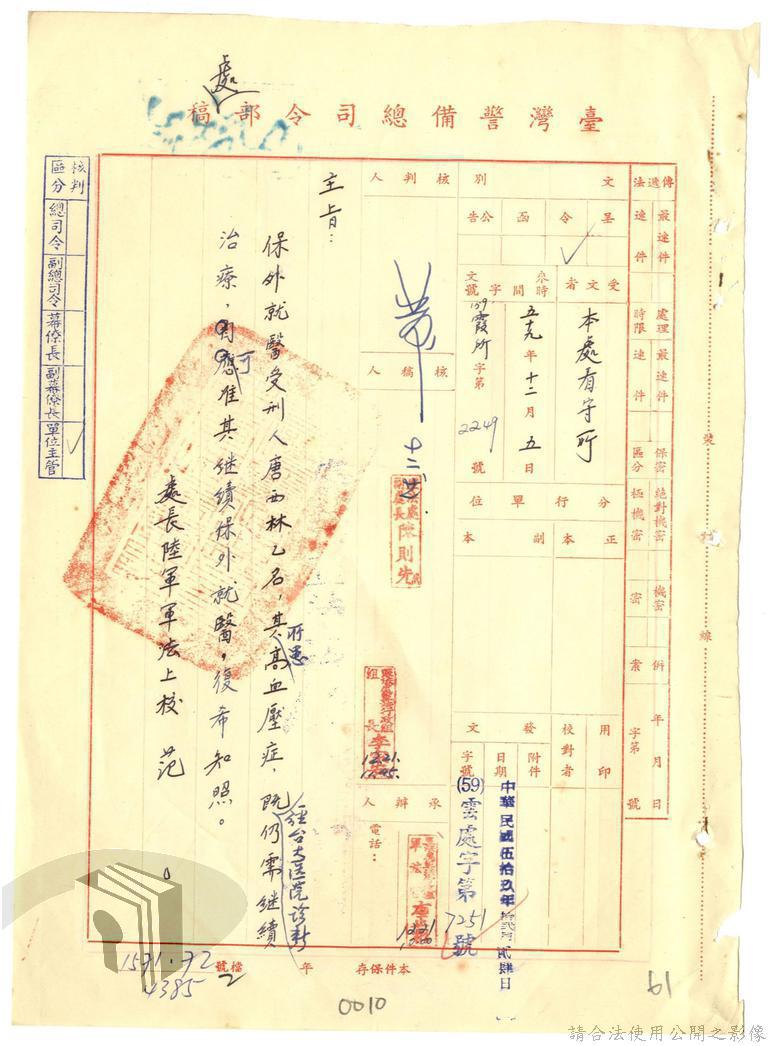 處
臺灣警備總司令部稿
傳遞法
最速件
速件
處理時限
最速件
速件
保密區分
絕對機密
極機密
機密
密
例
案
年月日
字第號
文別
呈
令
函
公告
受文者
本處看守所
來文
時間
五十九年十二月五日
字號
(59)霞所字第2249號
分行單位
正本
副本
用印
校對者
發文
附件
日期
中華民國伍拾玖年拾貳月貳肆日
字號
(59)雲處字第7251號
核判人
十二
核稿人
處長陳則先
組長李
12.21.
承辦人
電話：
12.21
主旨：
保外就醫受刑人唐西林乙名，其所患高血壓症，既經台大医院诊断仍需继續
治療，可准其继續保外就醫，復希知照。
處長陸軍軍法上校 范
核判區分
總司令
副總司令
幕僚長
副幕僚長
單位主管
本件保存 年
檔號
1571.72
4385
2
0010
61
裝訂線
請合法使用公開之影像